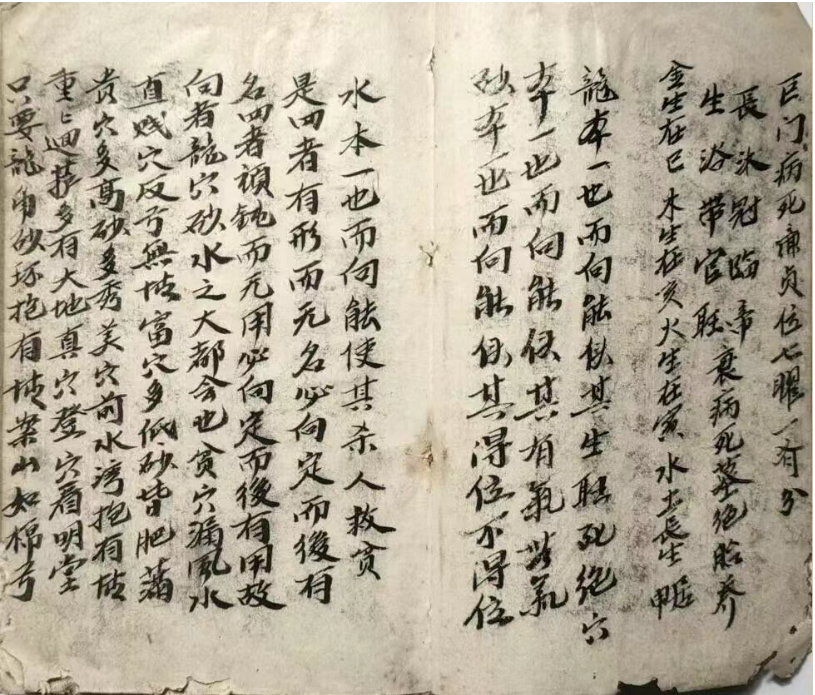 巨门病死廉贞位七曜一有分
長沐冠臨帝衰病死墓绝胎养
生浴带官旺
金生在巳木生在亥火生在寅水土長生申居
龍本一也而向能使其生旺死绝穴
本一也而向能使其有氣皆氣
砂本一也而向能使其得位不得位
水本一也而向能使其杀人救贫
是四者有形而无名必向定而後有
名四者頑鈍而无用必向定而後有用故
向者龍穴砂水之大都会也贫穴漏風水
直贱穴反弓無情富穴多低砂皆肥滿
贵穴多高砂多秀美穴前水湾抱有情
重上迴多有大地真穴登穴看明堂
只要龍角砂环抱有情案山如棉弓